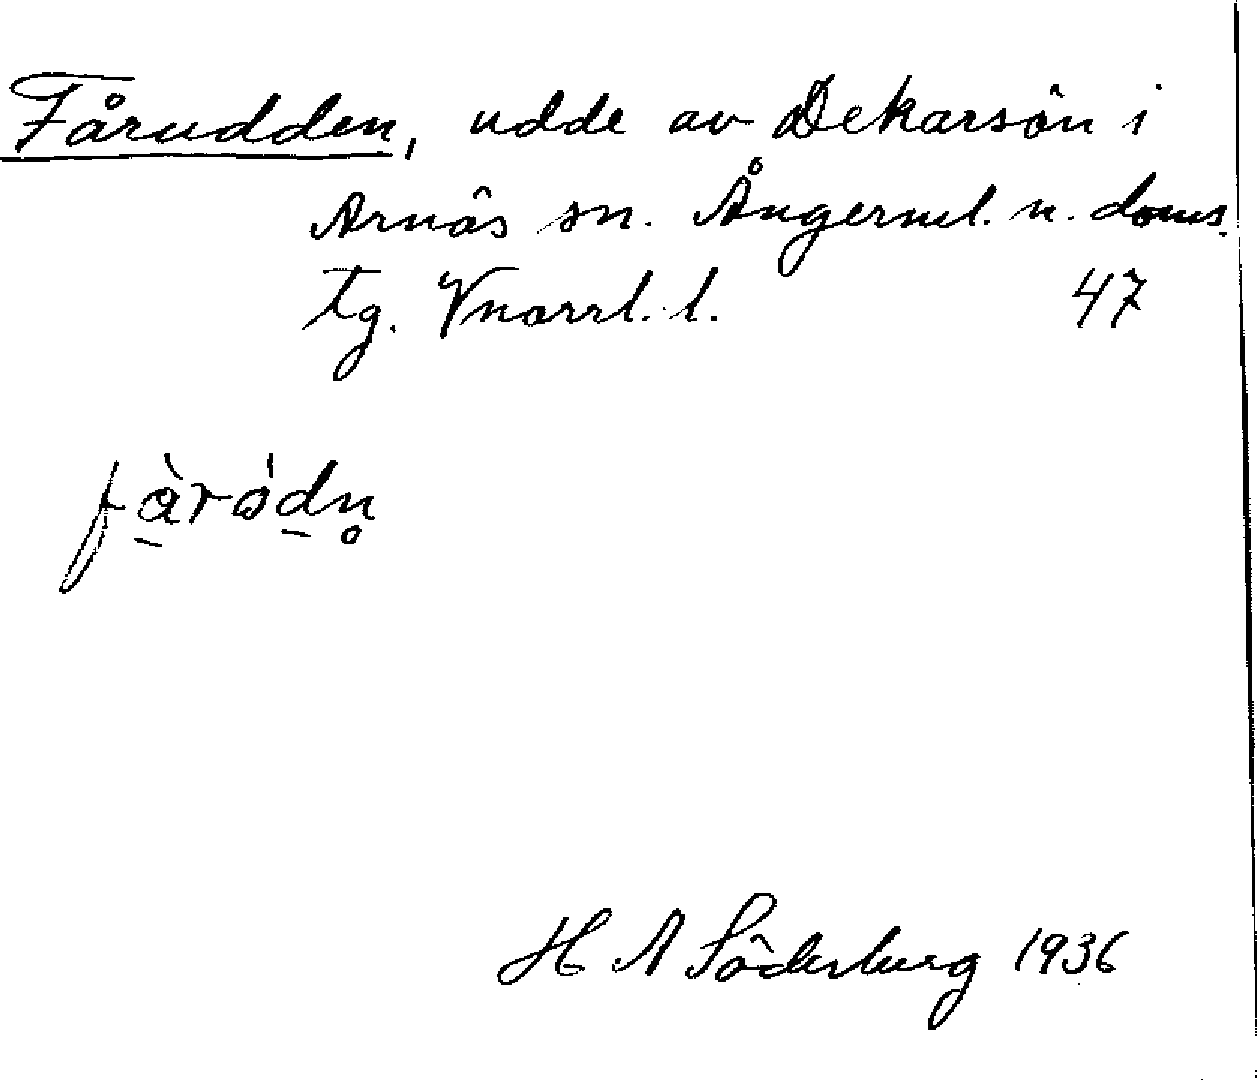 Fårudden, udde av Dekarsön i
Arnäs sn. Ångerml. n. doms.
tg. Vnorrl. l. 47
fàròdn̥
H A Söderberg 1936